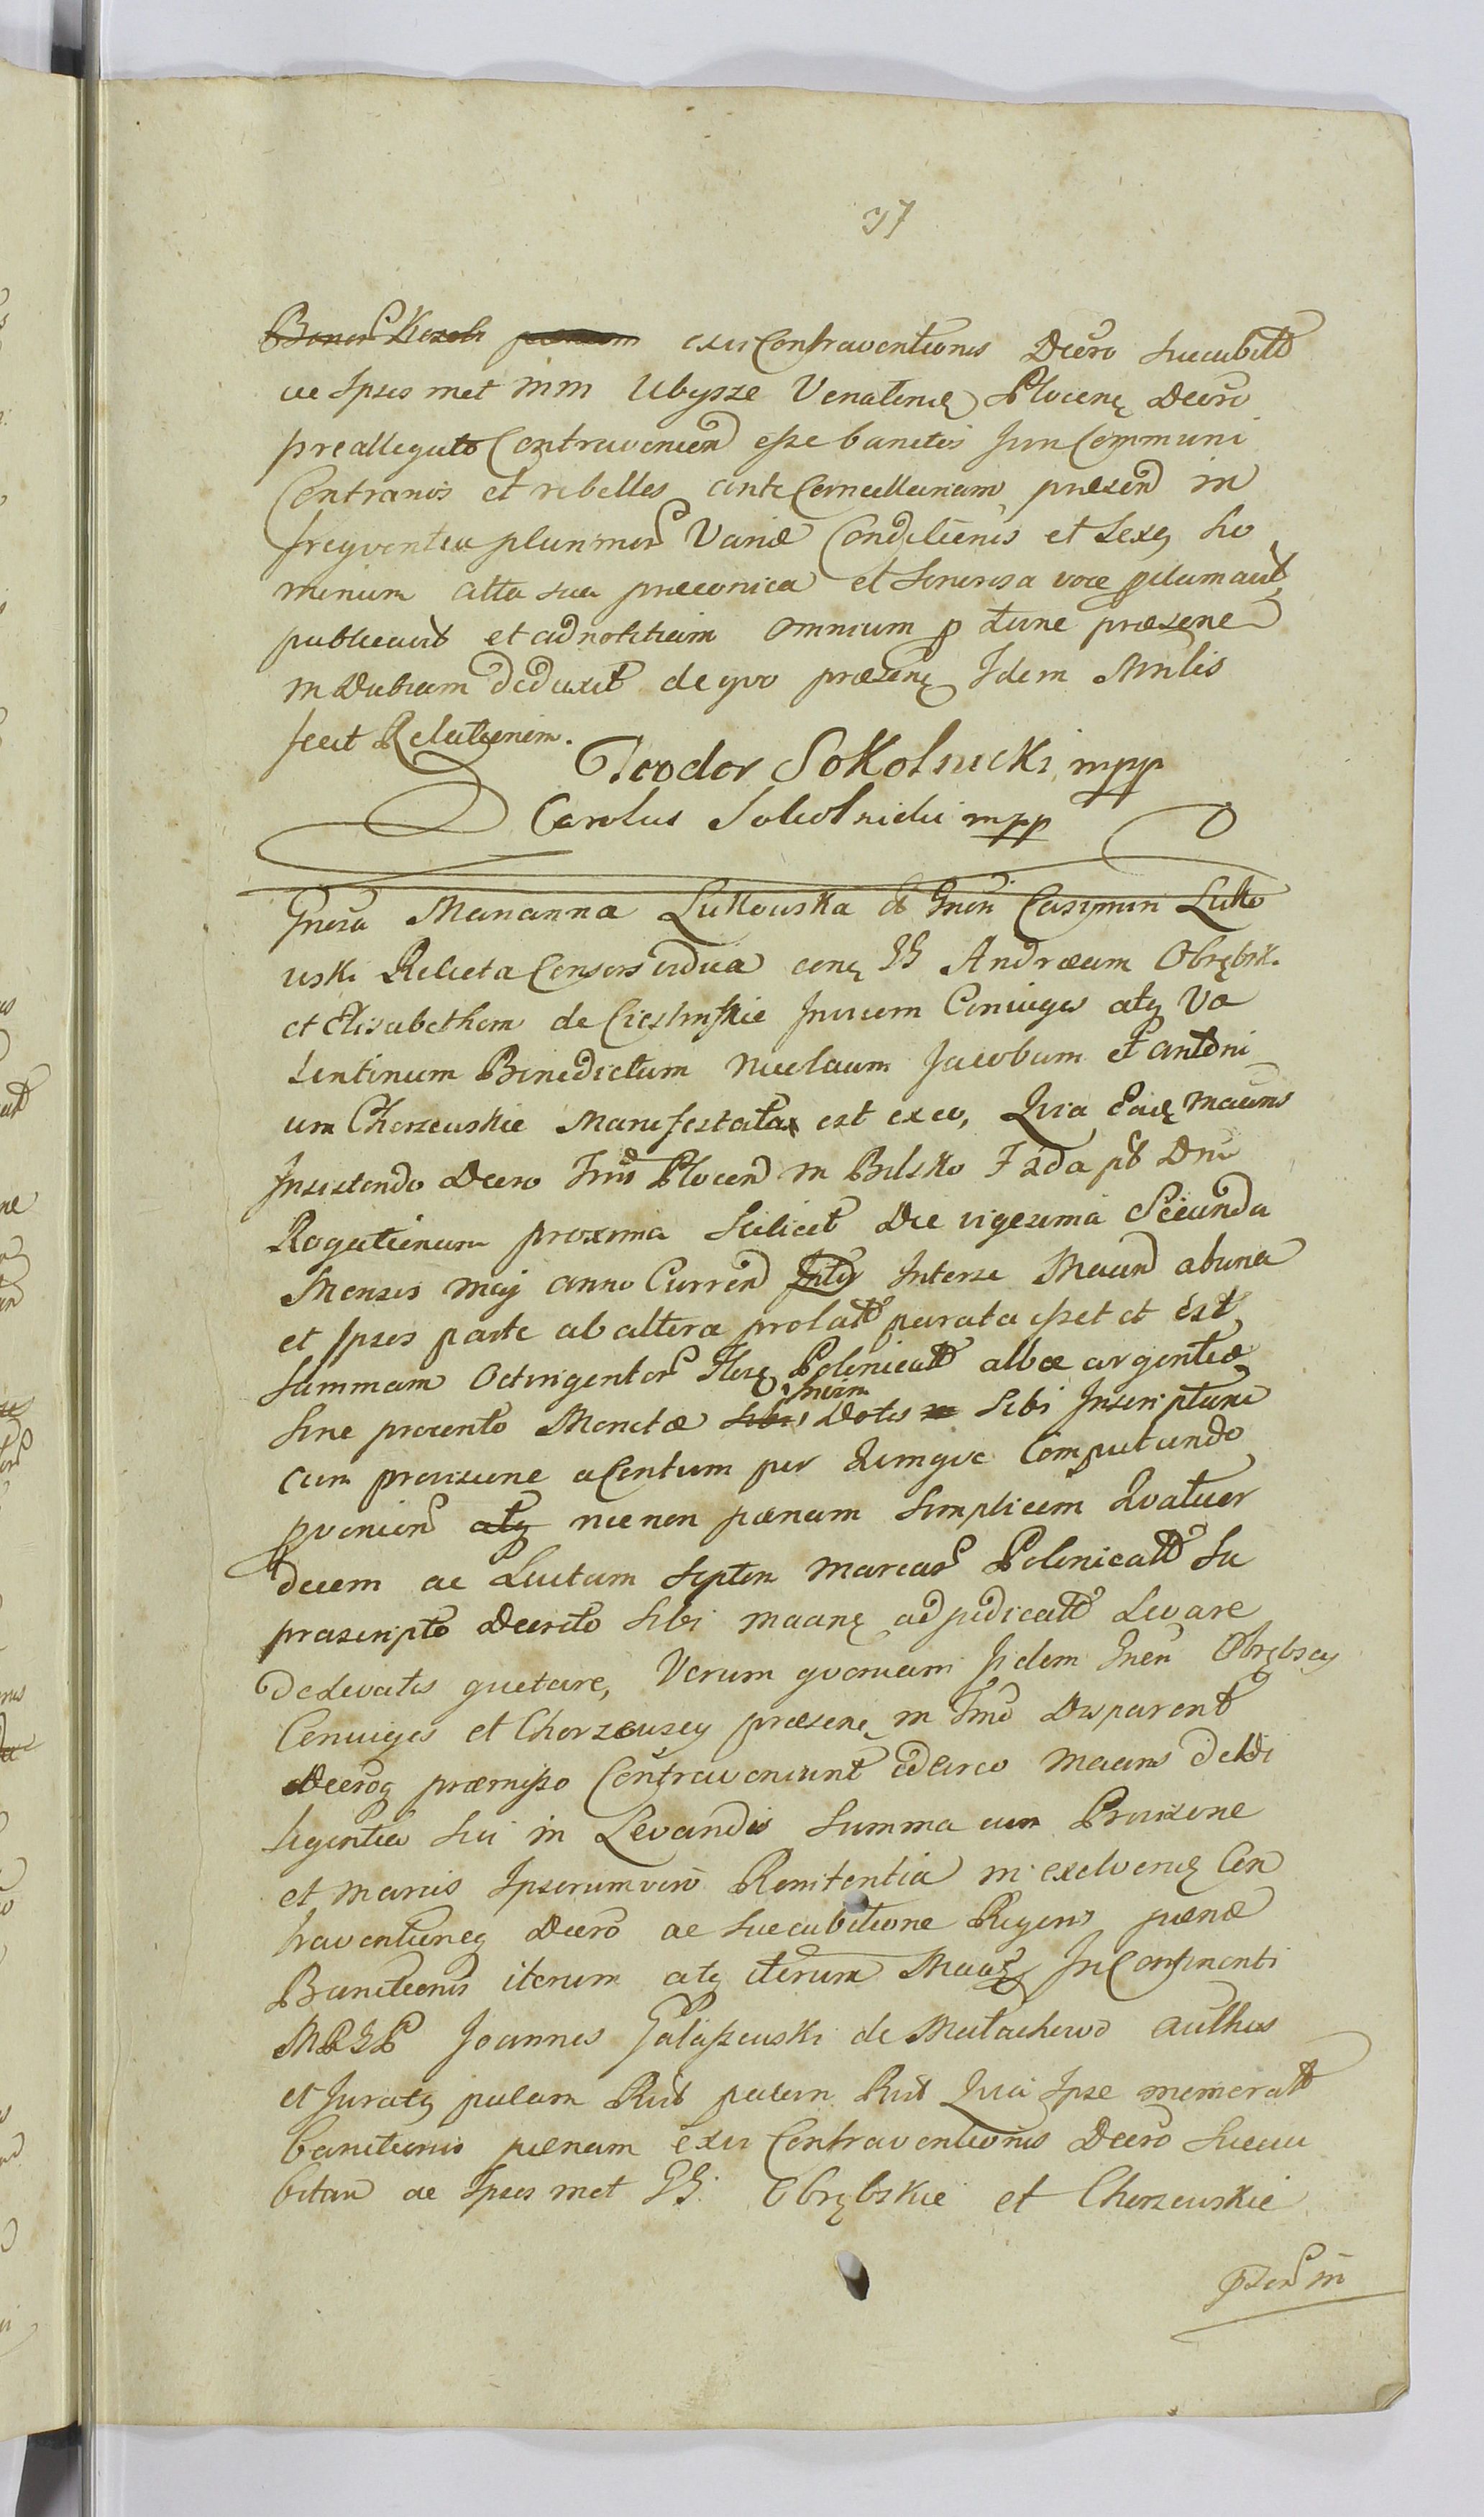 37
Bonor Kozeli exvi Contraventionis Decro succubitt
ac Ipsos met MM Ubysze Venatme Plocens Decro
preallegato Contravenien esse banitos Juri Communi
Contrarios et rebelles ante Cancellariam presen in
freqventia plurimor Variæ Conditionis et sexus ho
minum alta sua præconica et sonorosa voce pclamavit
publicavit et ad notitiam omnium p tunc præsene
in Dubiam deduxit de qvo præsens Idem Mnlis
fecit Relationem.
Teodor Sokolnicki mpp
Carolus Sokolnicki mpp
Gnosa Marianna Lukowska G Gnosi Casimiri Luko
wski Relicta Consors vidua cons GG Andræam Obrębsk.
et Elisabetham de Ciesliński Invicem Coniuges atq Va
lentinum Benedictum Nicolaum Jacobum et Antoni
um Chorzewskie Manifestata est ex eo, Qvia Eade maans
Insistendo Decro Trnô Plocen in Bielsko Fsda pt Dnic
Rogationum proxima scilicet Die vigesima Secunda
Mensis Maij anno Curren Inter se Maan ab una
et Ipsos parte ab altera prolatt parata esset et est
summam Octingentor flor Polonicatt albæ argenteæ
sine procento Monetæ sibi Dotis sibi Inscriptam
cum provisione a Centum per Qvinqve Computando
pvenien atq necnon pænam simplicem Qvatuor
decem ac Luctum septem Marcar Polonicatt su
prascripto Decreto sibi maans adjudicatt Levare
De Levatis quetare, Verum qvoniam Iidem Gnosi Obrębscy
Coniuges et Chorzewscy præsens in Trnô Disparent
Decroq præmisso Contraveniunt ideirco Maans de Di
ligentia sui in Levandis summa cum Provisione
et mariis Ipsorum vero Renitentia in exolvenâ Con
traventioneq Decro ac succubitione Rigoris pænæ
Banitionis iterum atq iterum Maar In Continenti
MRGP Joannes Gałązewski de Małachowo authus
et Juratq palam Rlit palam Rlit Qvia Ipse memoratt
banitionis pænam exvi Contraventionis Decro succu
bitam ac Ipsos met GG. Obrębskie et Chorzewskie